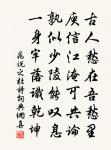 古人愁在吾愁里
庾信江淹可共论
孰似少陵能叹息
一身牢落识乾坤
晁说之杜诗词典网喜